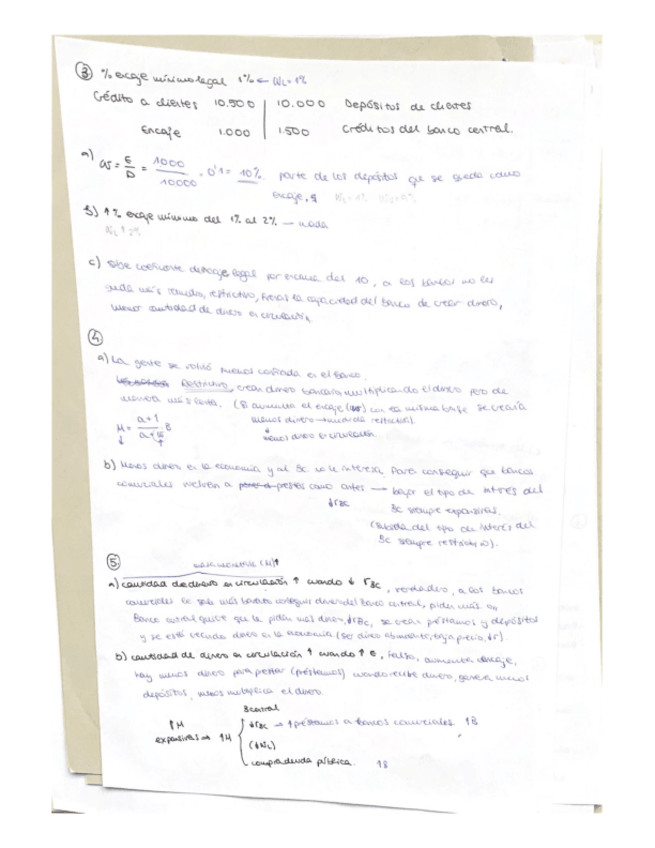 ③ % encaje mínimo legal 1% ← WL = 1%
Crédito a clientes 10.500 | 10.000 Depósitos de clientes
Encaje 1.000 | 1.500 Créditos del banco central.
a) W = E/D = 1000/10000 = 0'1 = 10% parte de los depósitos que se queda como
encaje,
b) ↑ % encaje mínimo del 1% al 2% — nada
WL ↑ 2%
c) Sube coeficiente de encaje legal por encima del 10, a los bancos no les
queda más remedio, restrictivo, la capacidad del banco de crear dinero,
menor cantidad de dinero en circulación
④
a) La gente se volvió menos confiada en el banco.
Restrictivo, crean dinero bancario multiplicando el dinero pero de
manera más lenta. (Si aumenta el encaje (W) con esa misma base se crearía
menos dinero
menos dinero en circulación.
M = a+1/a+W B
b) Menos dinero en la economía y al Bc no le interesa. Para conseguir que bancos
comerciales vuelvan a prestar como antes → bajar el tipo de interés del
↓rBC Bc siempre expansivas.
(subida del tipo de interés del
Bc siempre restrictivo).
⑤ masa monetaria (M)↑
a) cantidad de dinero en circulación ↑ cuando ↓ rBC, verdadero, a los bancos
comerciales les sale más barato conseguir dinero del Banco central, piden más
Banco central quiere que le pidan más dinero, ↓rBC, se crean préstamos y depósitos
y se está creando dinero en la economía
b) cantidad de dinero en circulación ↑ cuando ↑ e, falso, aumenta encaje,
hay menos dinero para prestar (préstamos) cuando recibe dinero, genera menos
depósitos, menos multiplica el dinero.
Bcentral
↑M
expansivas → ↑M
↓rBC → ↑préstamos a bancos comerciales ↑B
(↓WL)
compra deuda pública. ↑B